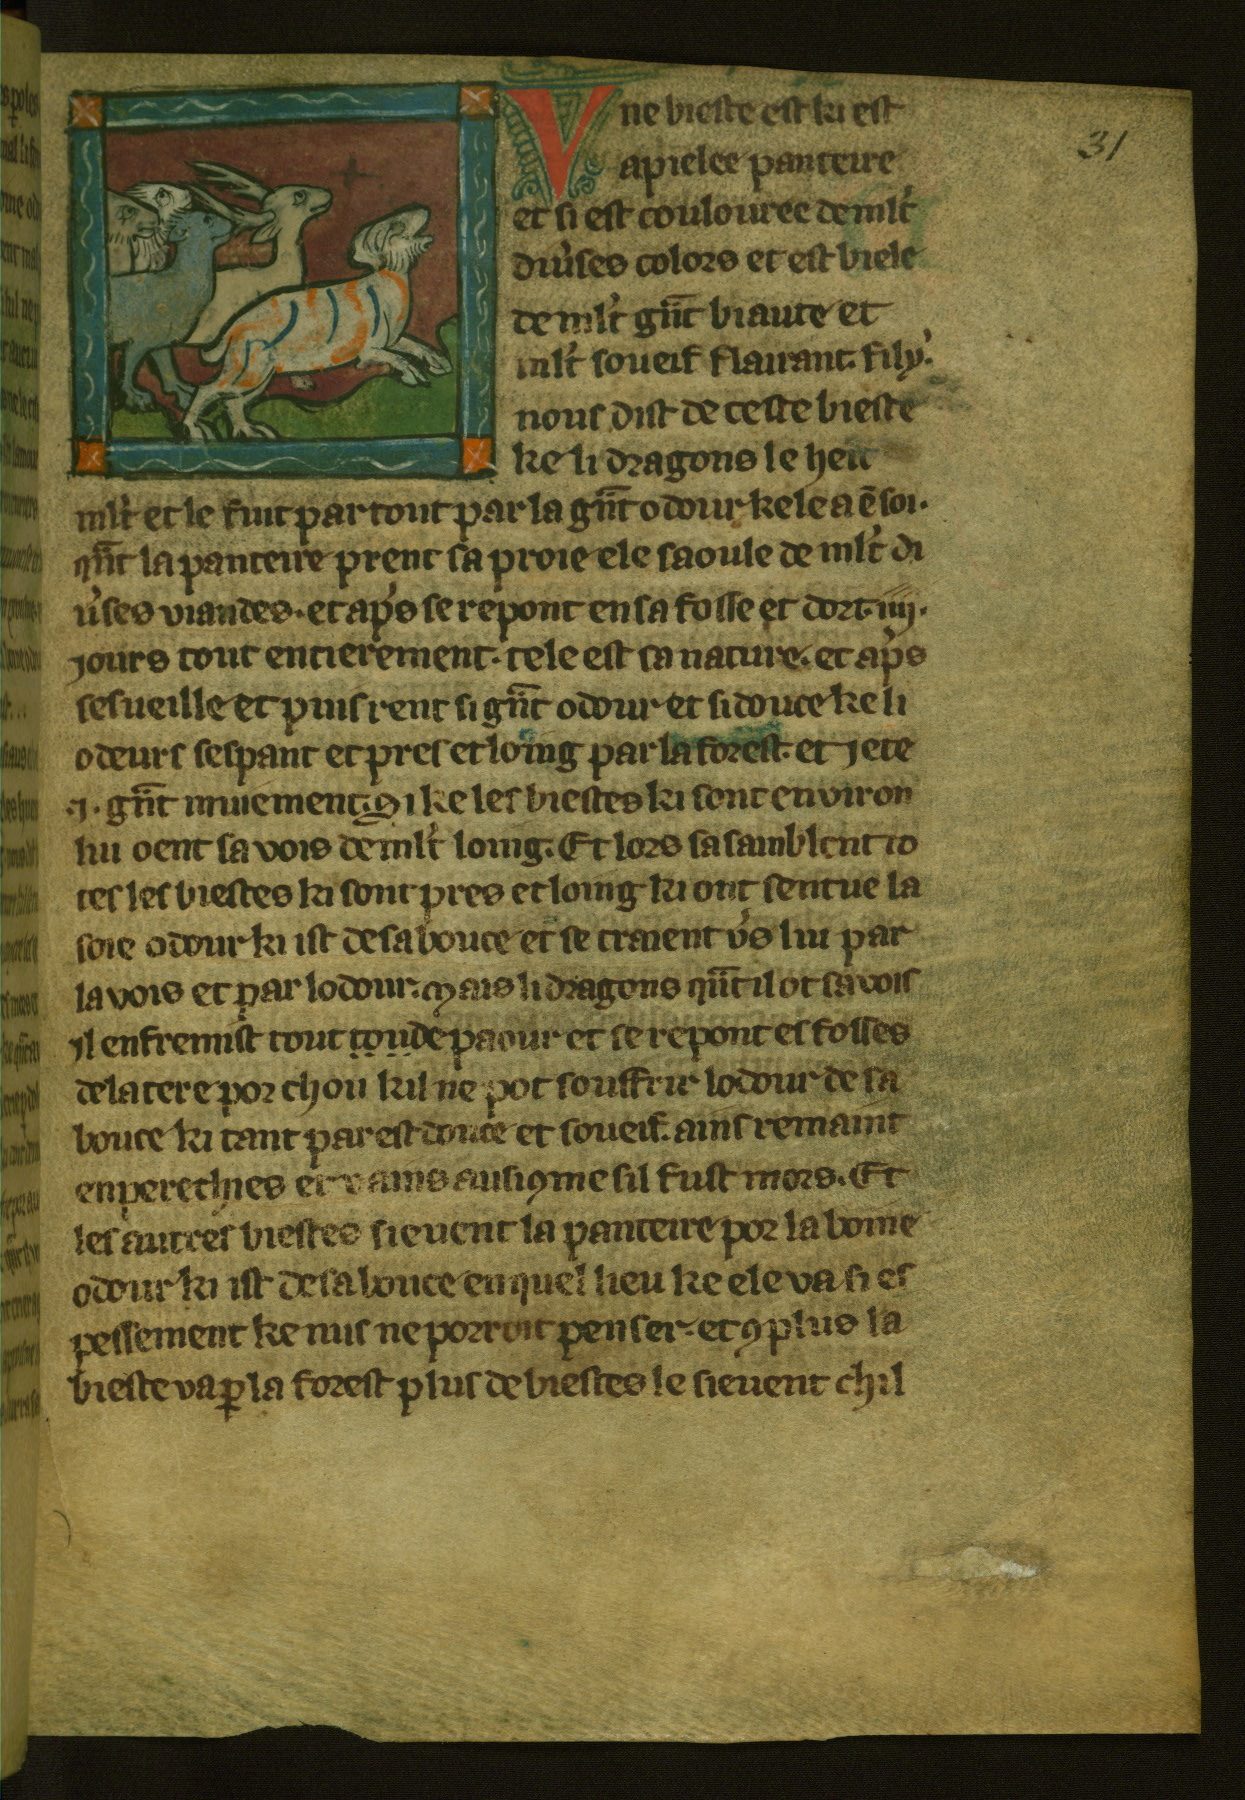 31
Vne bieste est ki est
apielee panteire
et si est coulouree de ml't
diu'ses colors et est biele
de ml't gn̄t biaute et
ml't soueif flairant. fily'.
nous dist de ceste bieste
ke li dragons le heit
ml't et le fuit par tout par la gn̄t odour kele a ē soi.
qn̄t la panteire prent sa proie ele saoule de ml't di
u'ses viandes. et ap's se repont en sa fosse et dort .iiij.
jours tout entierement. tele est sa nature. et ap's
sesueille et puis rent si gn̄t odour et si douce ke li
odeurs sespant et pres et loing par la forest. et jete
.j. gn̄t muiement. Si ke les biestes ki sont environ
lui oent sa vois de ml't loing. Et lors sasamblent to
tes les biestes ki sont pres et loing ki ont sentue la
soie odour ki ist de sa bouce et se traient v's lui par
la vois et par lodour. Mais li dragons qn̄t il ot sa vois
jl enfremist tout toude paour et se repont es fosses
de la tere por chou kil ne pot souffrir lodour de sa
bouce ki tant par est douce et soueif. ains remaint
enperechies et vains ausi 9me sil fust mors. Et
les autres biestes sieuent la panteire por la boine
odour ki ist de sa bouce en quel lieu ke ele va si es
pessement ke nus ne porroit penser. et 9 plus la
bieste va ꝑ la forest plus de biestes le sieuent chil